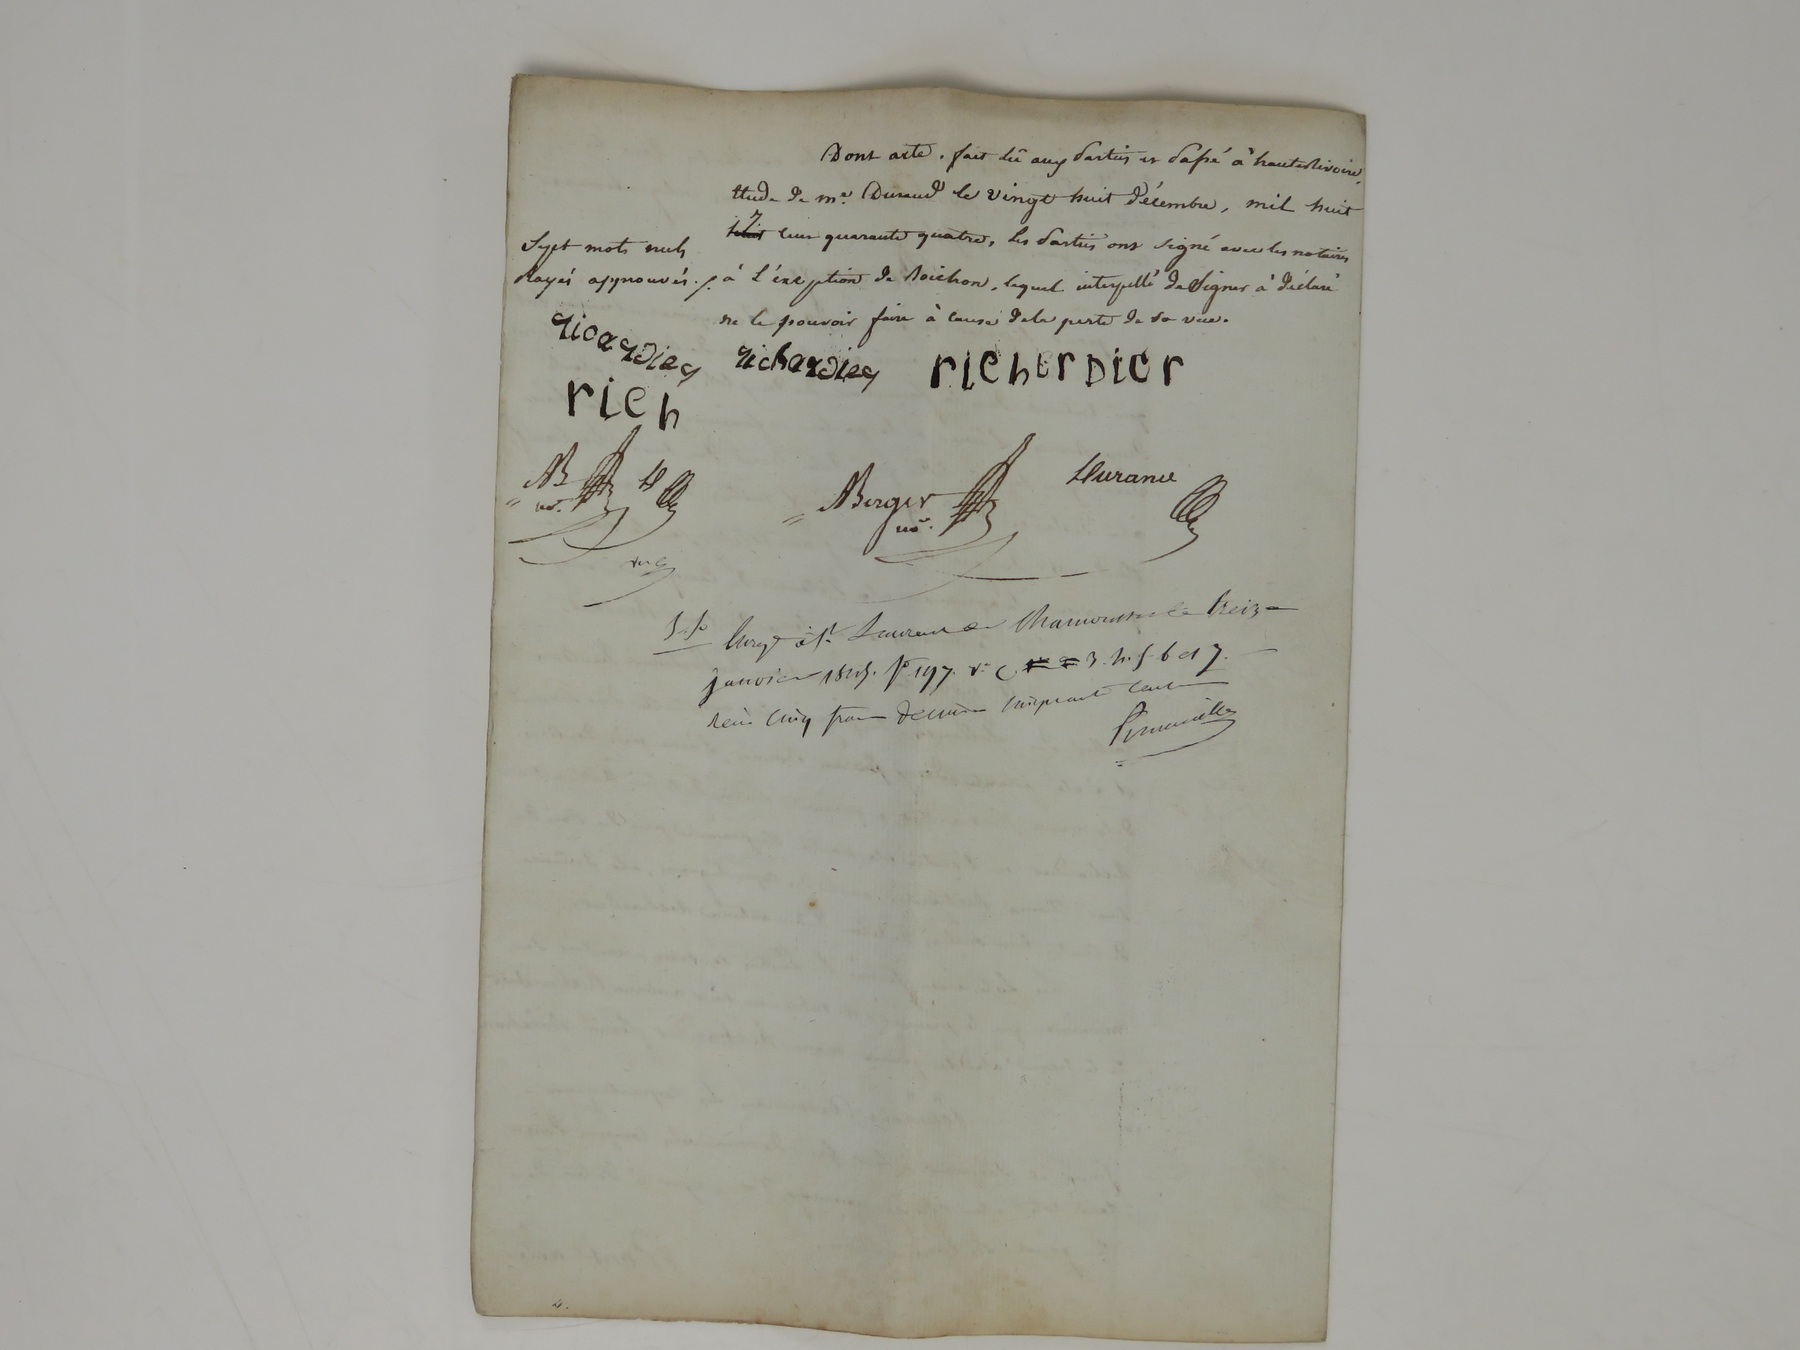 Dont acte. fait lû aux parties et passé à hauterivoire,
étude de me. Durand le vingt huit décembre, mil huit
cens quarante quatre, les parties ont signé avec les notaires
à l'exception de Poichon, lequel interpellé de signer à déclaré
ne le pouvoir faire à cause de la perte de sa vue.
Sept mots nuls
Rayés approuvés ./.
richardier
richerDier
rich
AB D
no.
ABerger
no.
Durand
à St. Laurent de Chamousset le treize
janvier 1845. fo. 197. vo. c 3. 4. 5. 6 et 7.
reçu cinq francs décime cinquante cent
4.